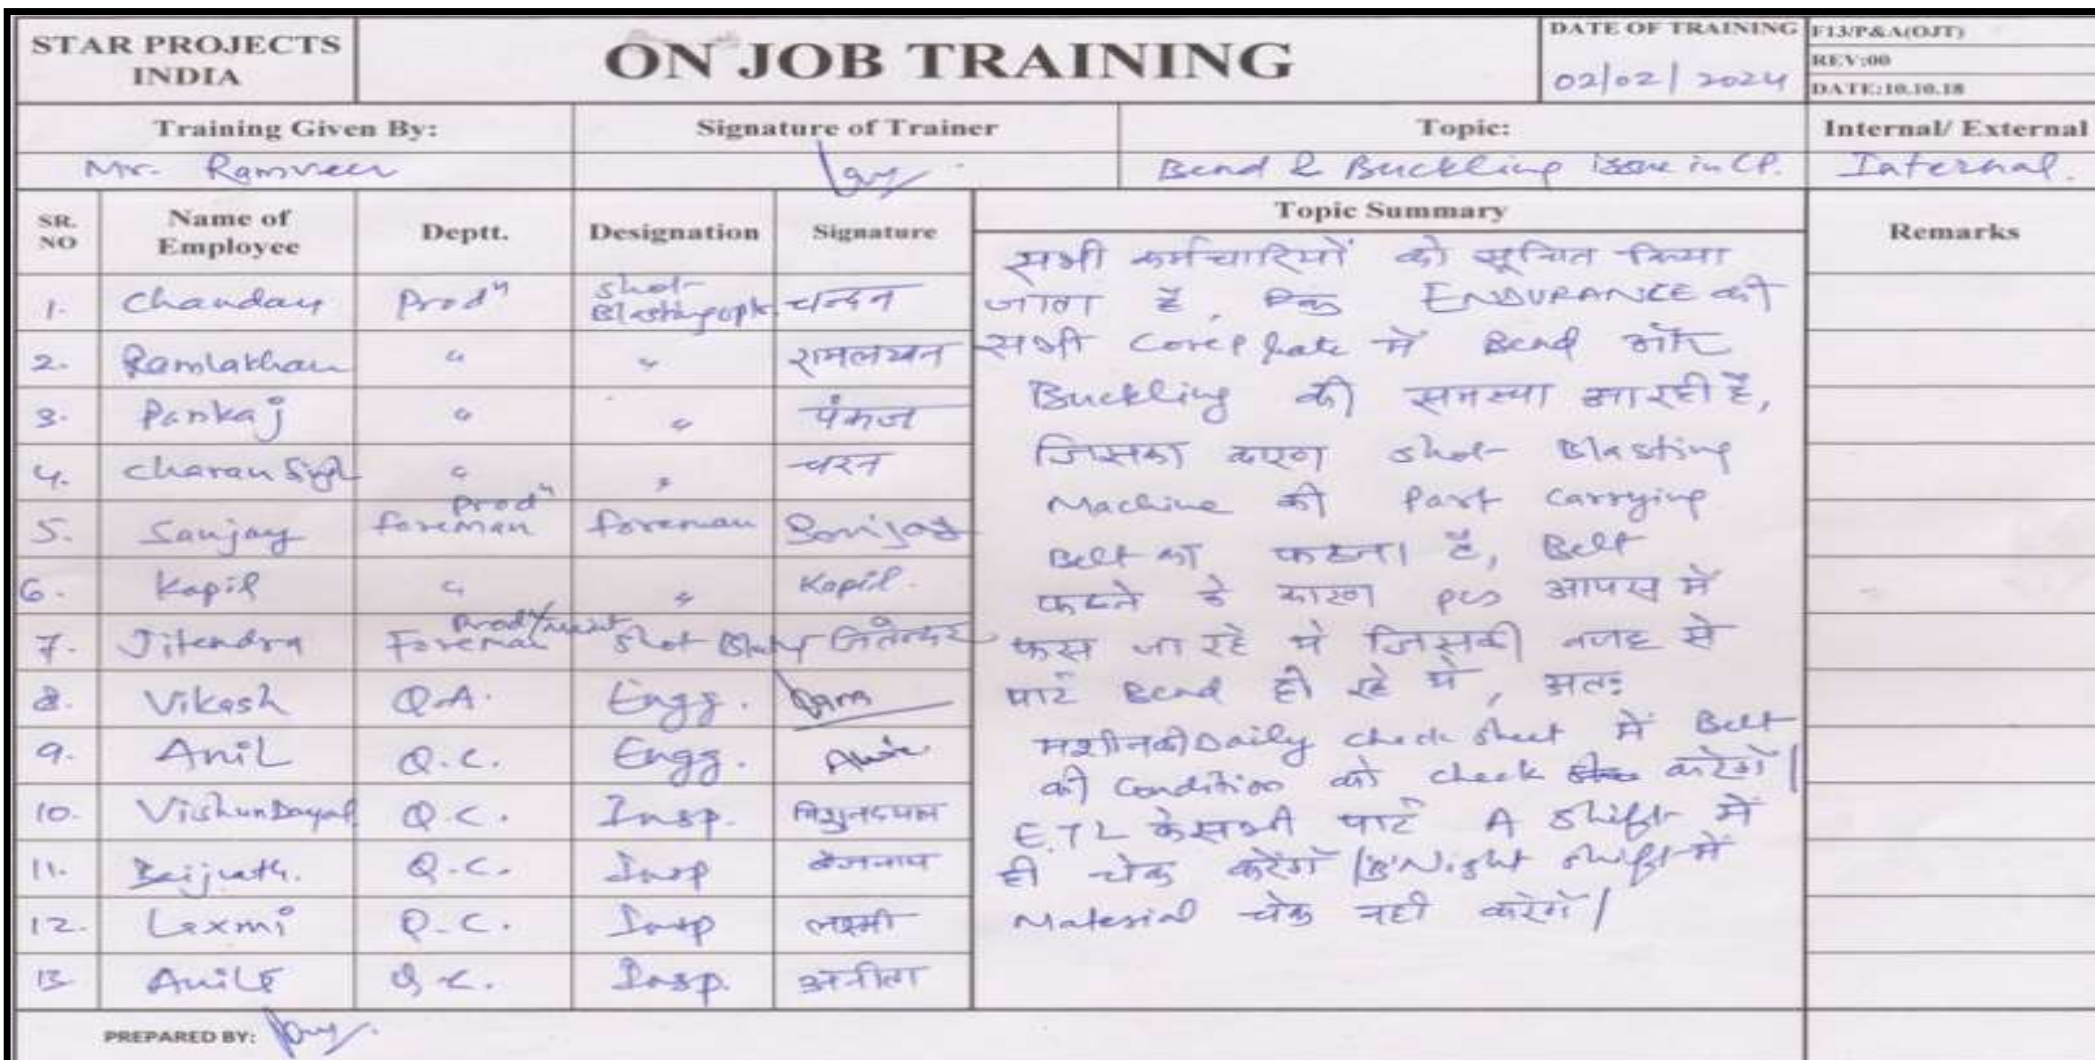 STAR PROJECTS INDIA
ON JOB TRAINING
DATE OF TRAINING
02/02/2024
F13/P&A(OJT)
REV:00
DATE:10.10.18
Training Given By: Signature of Trainer Topic: Internal/ External
Mr. Ramveer Bend & Buckling issue in CP. Internal.
SR. NO Name of Employee Deptt. Designation Signature Topic Summary Remarks
1. Chandan Prodⁿ Shot- Blasting चन्दन
2. Ramlakhan " " रामलखन
3. Pankaj " " पंकज
4. Charan Singh " " चरन
5. Sanjay Prodⁿ foreman foreman
6. Kapil " " Kapil.
7. Jitendra Foreman Shot जितेन्दर
8. Vikash Q.A. Engg.
9. Anil Q.C. Engg.
10. VishunDayal Q.C. Insp. विशुनदयाल
11. Baijnath. Q.C. Insp बैजनाथ
12. Laxmi Q.C. Insp लक्ष्मी
13. Anita Q.C. Insp. अनीता
सभी कर्मचारियों को सूचित किया
जाता है, कि ENDURANCE की
सभी Coreplate में Bend और
Buckling की समस्या आ रही है,
जिसका कारण shot- Blasting
Machine की Part Carrying
Belt का फटना है, Belt
फटने के कारण pcs आपस में
फस जा रहे थे जिसकी वजह से
पार्ट Bend हो रहे थे, अतः
मशीन की Daily check sheet में Belt
की Condition को check करेगें।
E.T.L के सभी पार्ट A shift में
ही चेक करेंगें। 'B' Night shift में
Material चेक नही करेगें।
PREPARED BY: